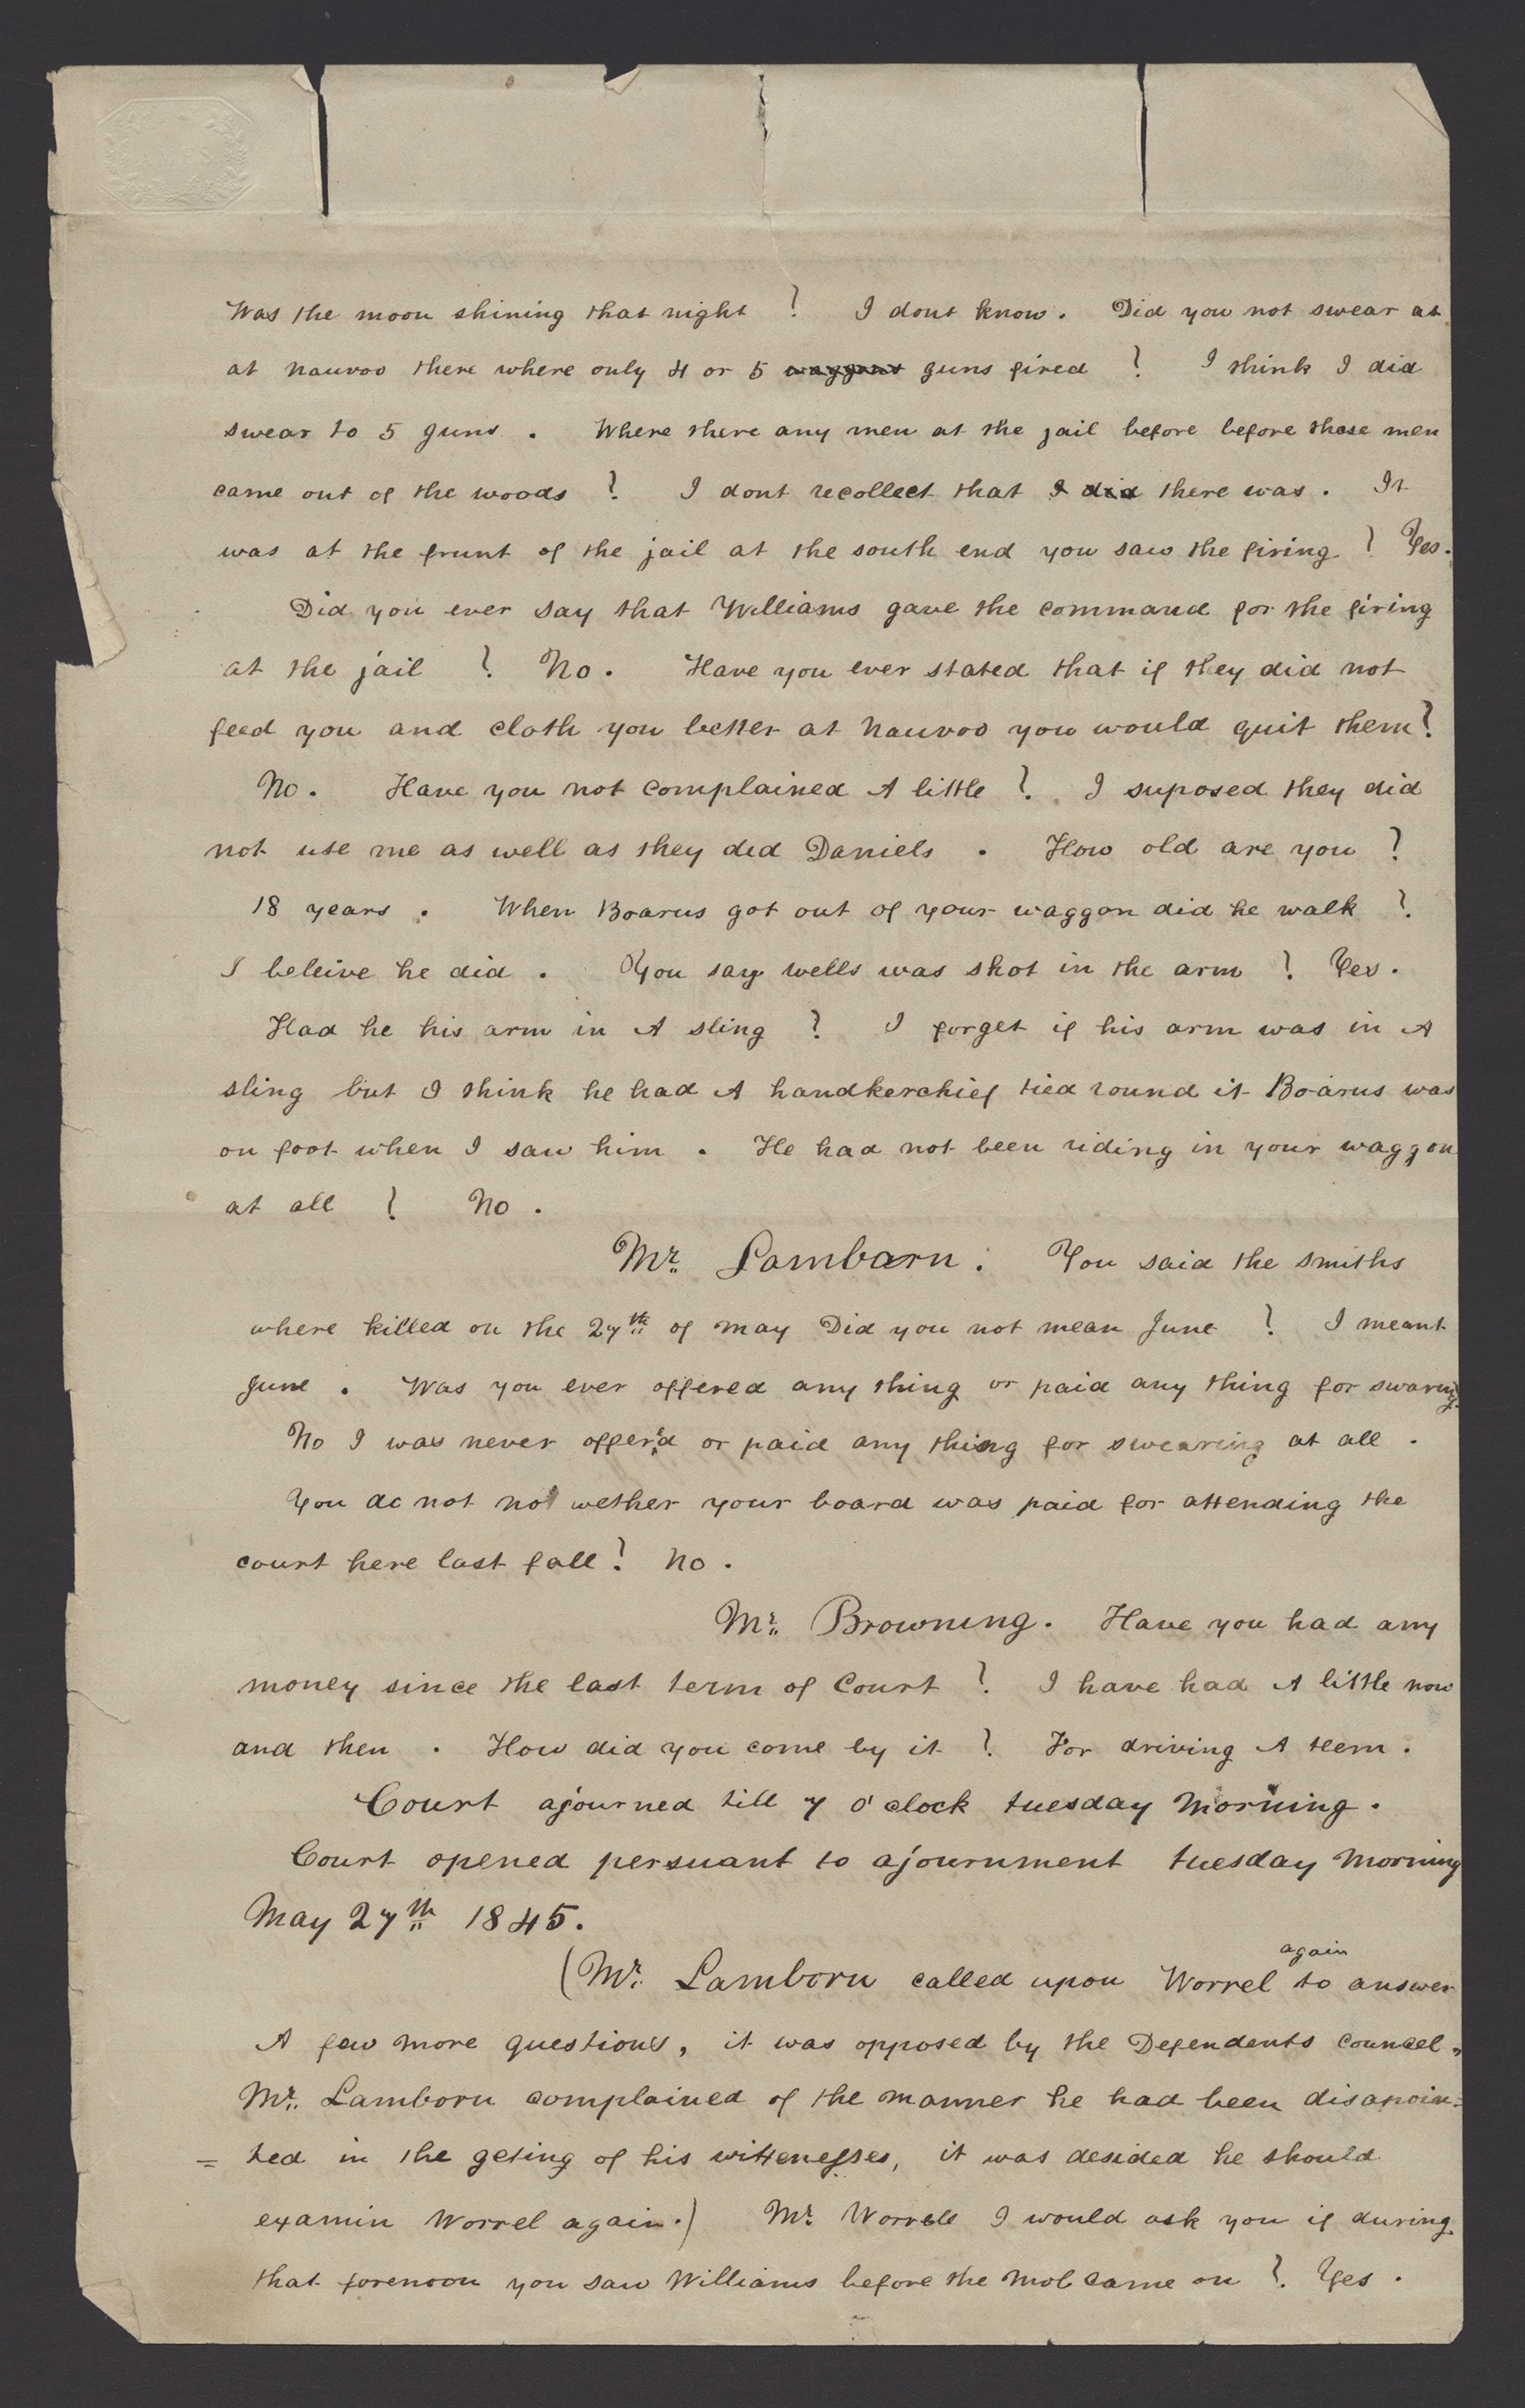 Was the moon shining that night ? I dont know . Did you not swear at
at nauvoo there where only 4 or 5 waggons guns fired ? I think I did
swear to 5 guns . Where there any men at the jail before before those men
came out of the woods ? I dont recollect that I did there was . It
was at the frunt of the jail at the south end you saw the firing ? Yes .
Did you ever say that Williams gave the command for the firing
at the jail ? No . Have you ever stated that if they did not
feed you and cloth you better at nauvoo you would quit them ?
No . Have you not complained A little ? I suposed they did
not use me as well as they did Daniels . How old are you ?
18 years . When Boarus got out of your waggon did he walk ?
I beleive he did . You say wells was shot in the arm ? Yes .
Had he his arm in A sling ? I forget if his arm was in A
sling but I think he had A handkerchief tied round it Boarus was
on foot when I saw him . He had not been riding in your waggon
at all ? No .
Mr. Lambarn . You said the smiths
where killed on the 27th of may Did you not mean June ? I meant
June . Was you ever offered any thing or paid any thing for swaring
No I was never offer'd or paid any thing for swearing at all .
You do not not wether your board was paid for attending the
court here last fall ? No .
Mr. Browning . Have you had any
money since the last term of Court ? I have had A little now
and then . How did you come by it ? For driving A teem .
Court ajourned till 7 o'clock tuesday Morning .
Court opened persuant to ajournment tuesday Morning
May 27th 1845 .
(Mr. Lamborn called upon Worrel again to answer
A few more questions, it was opposed by the Defendents councel ,
Mr. Lamborn complained of the manner he had been disapoin=
= ted in the geting of his wittenesses, it was desided he should
examin Worrel again .) Mr. Worrell I would ask you if during
that forenoon you saw Williams before the Mob came on ? Yes .